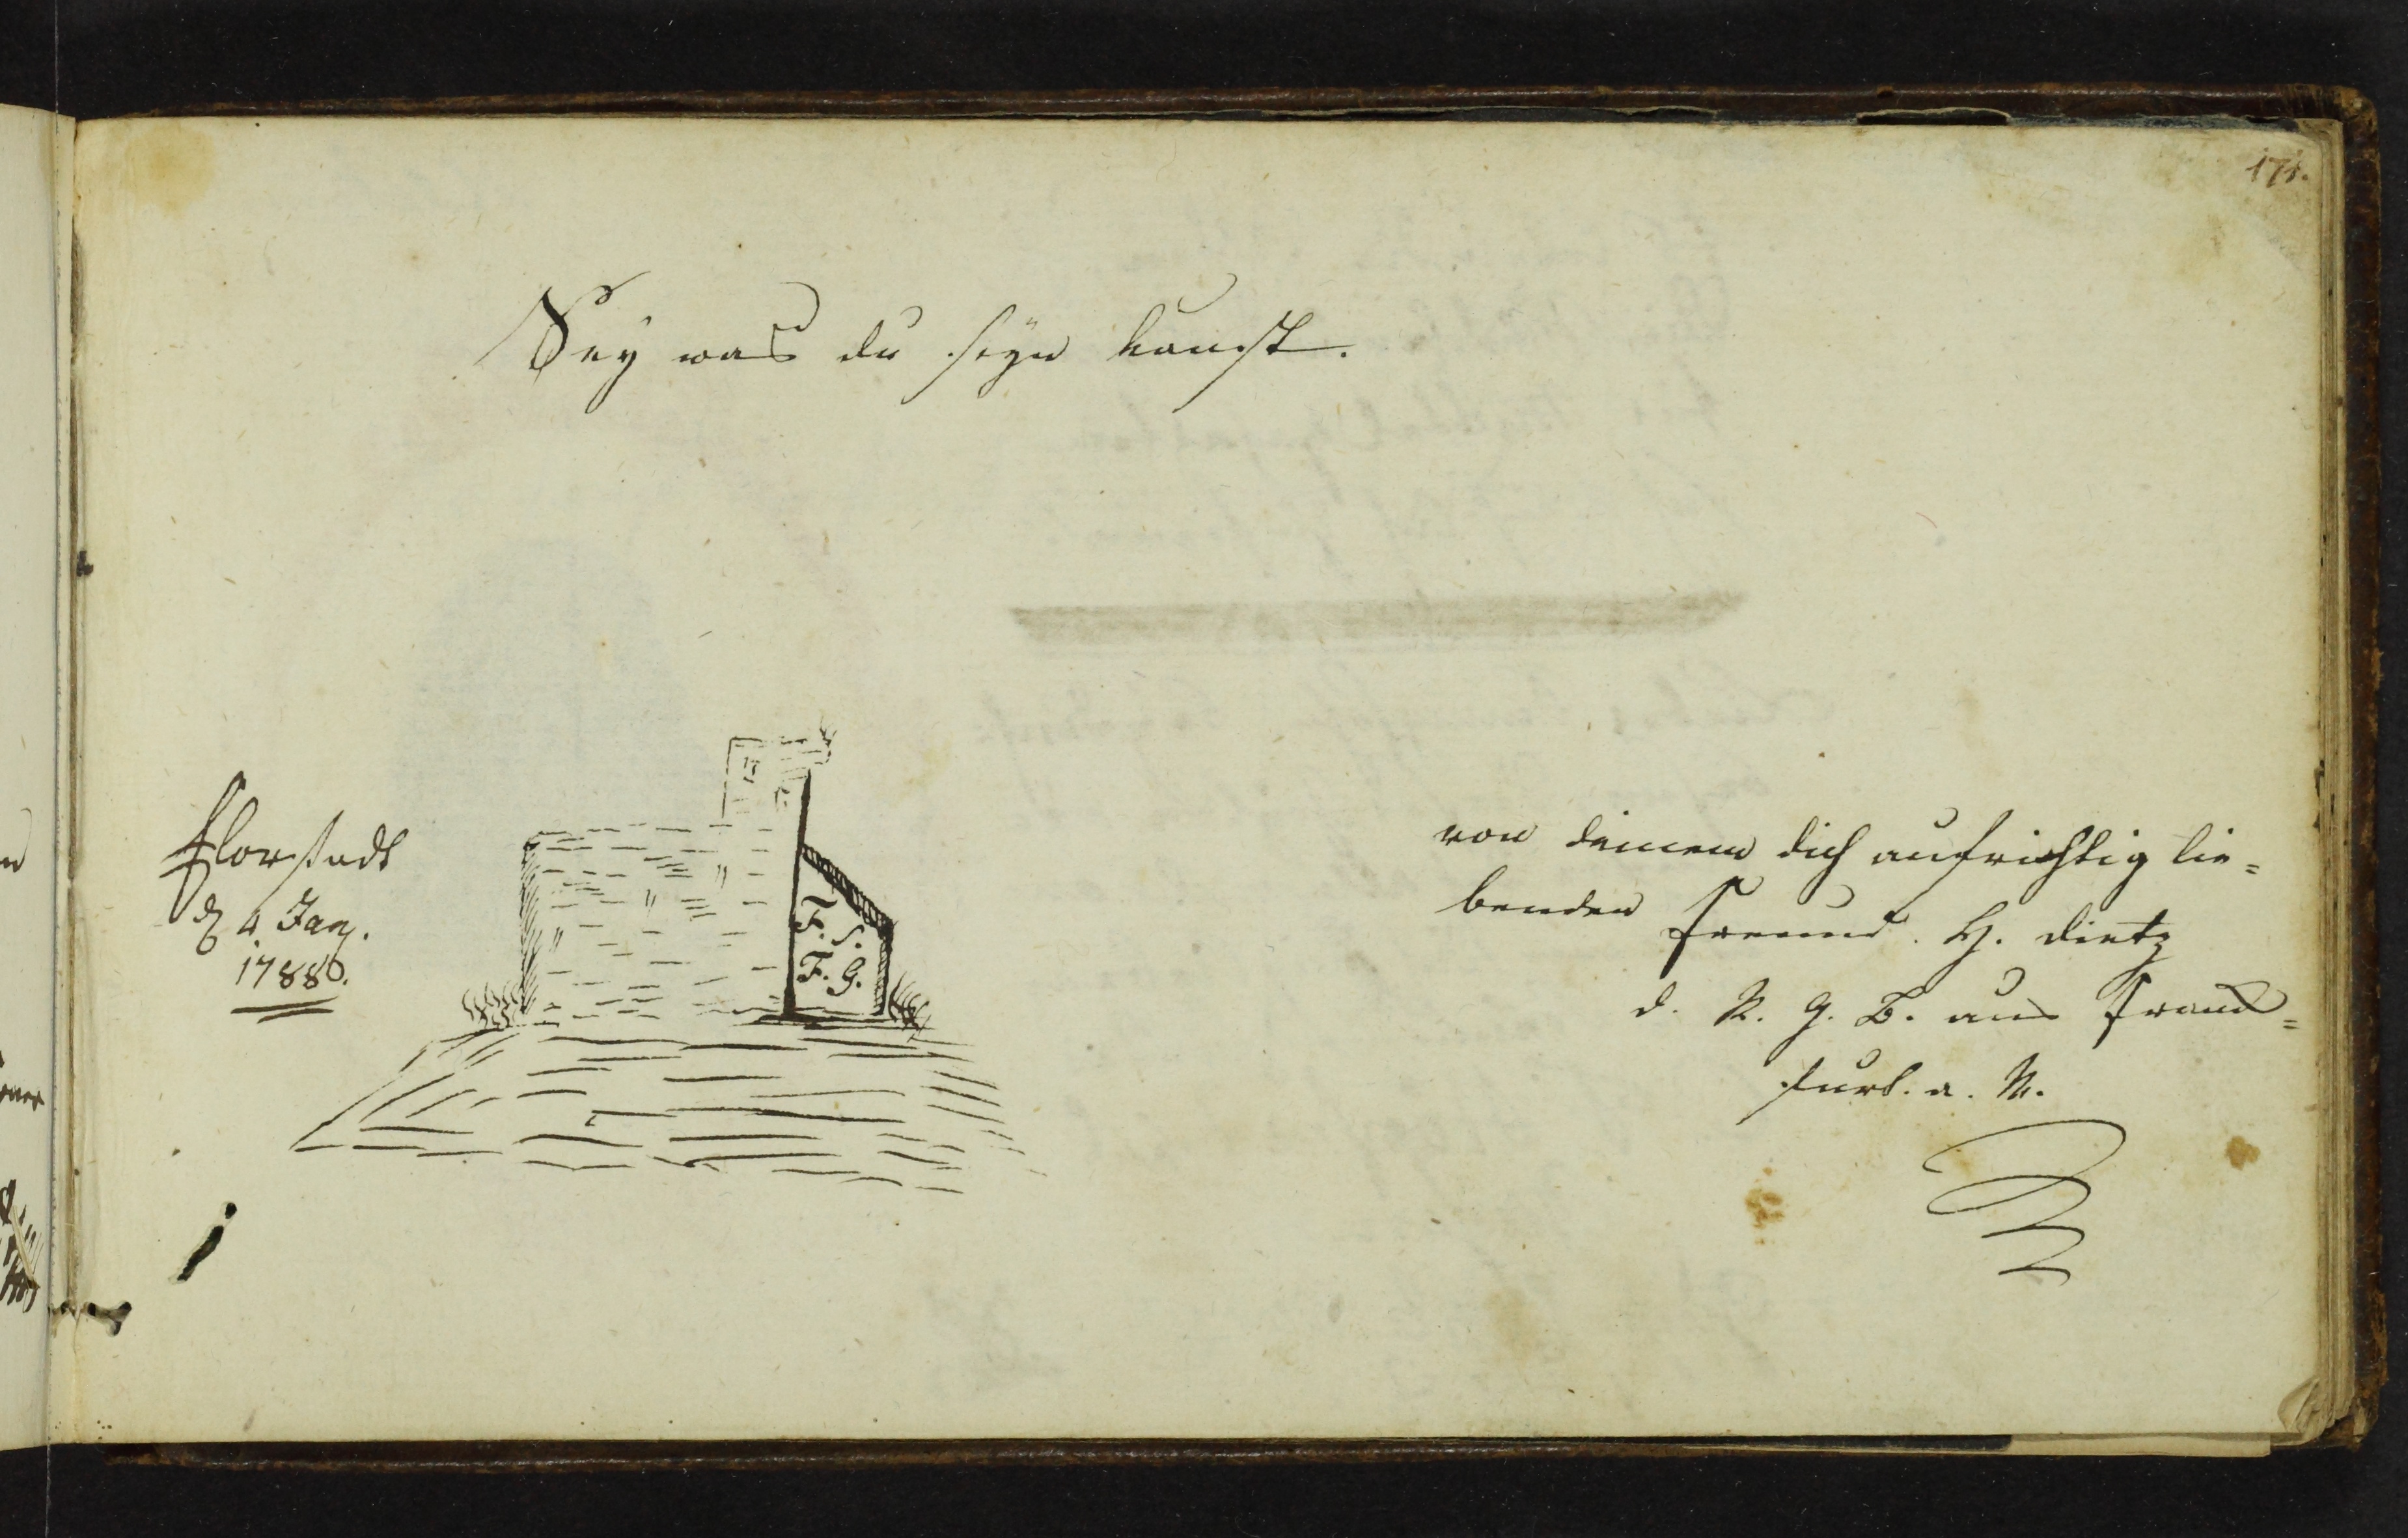 171.
Sey was du seyn kanst.
Florstadt
d 4 Jan.
1788.
F. S.
F. G.
von deinem dich aufrichtig lie=
benden Freund. H. Dietz
d. R. G. B. aus Franck=
furt. a. M.